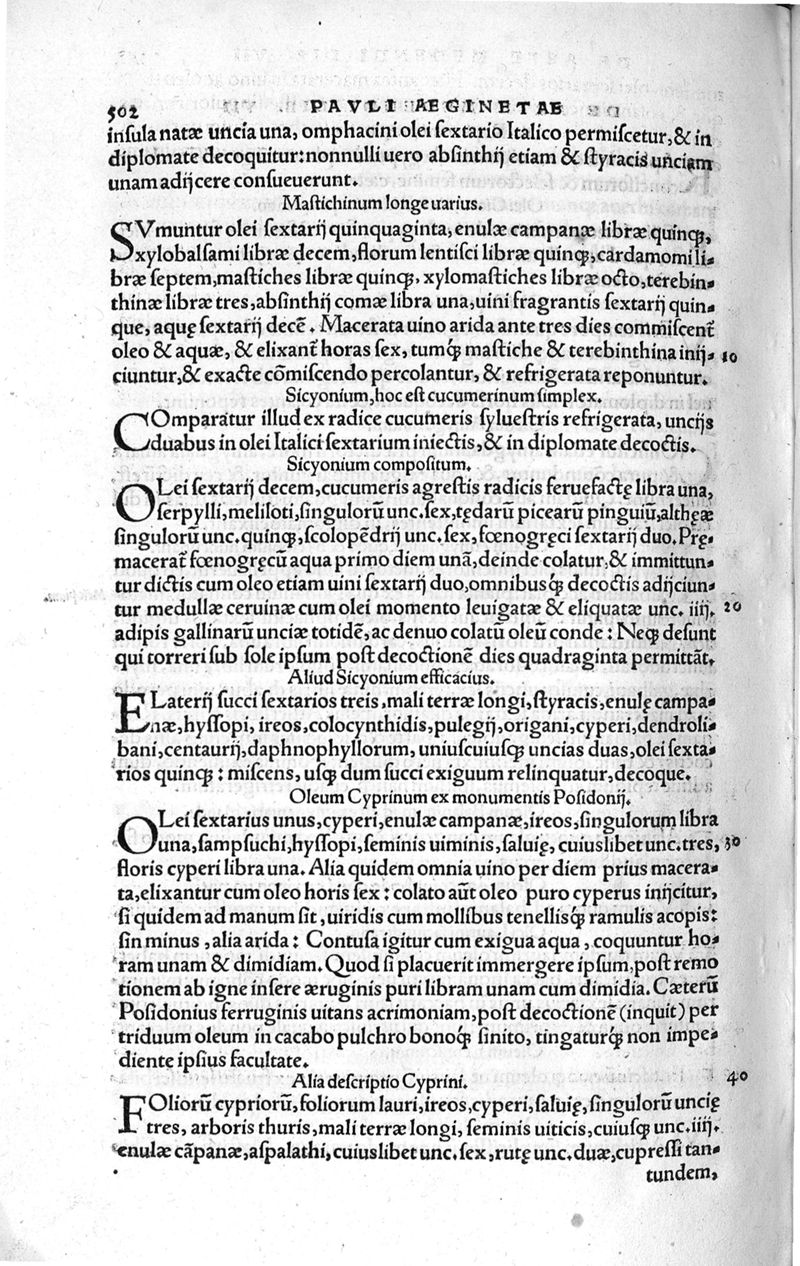 502 PAVLI AEGINETAE
insula natæ uncia una, omphacini olei sextario Italico permiscetur, & in
diplomate decoquitur: nonnulli uero absinthij etiam & styracis unciam
unam adijcere consueuerunt.
Mastichinum longe uarius.
SVmuntur olei sextarij quinquaginta, enulæ campanæ libræ quinq;,
xylobalsami libræ decem, florum lentisci libræ quinq;, cardamomi li-
bræ septem, mastiches libræ quinq;, xylomastiches libræ octo, terebin-
thinæ libræ tres, absinthij comæ libra una, uini fragrantis sextarij quin-
que, aquę sextarij decē. Macerata uino arida ante tres dies commiscent̃
oleo & aquæ, & elixant̃ horas sex, tumq́; mastiche & terebinthina inij- 10
ciuntur, & exacte cōmiscendo percolantur, & refrigerata reponuntur.
Sicyonium, hoc est cucumerinum simplex.
COmparatur illud ex radice cucumeris syluestris refrigerata, uncijs
duabus in olei Italici sextarium iniectis, & in diplomate decoctis.
Sicyonium compositum.
OLei sextarij decem, cucumeris agrestis radicis feruefactę libra una,
serpylli, meliloti, singulorũ unc. sex, tędarũ picearũ pinguiũ, althęæ
singulorũ unc. quinq;, scolopēdrij unc. sex, fœnogręci sextarij duo. Prę-
macerat̃ fœnogręcũ aqua primo diem unã, deinde colatur, & immittun-
tur dictis cum oleo etiam uini sextarij duo, omnibusq́; decoctis adijciun-
tur medullæ ceruinæ cum olei momento leuigatæ & eliquatæ unc. iiij. 20
adipis gallinarũ unciæ totidē, ac denuo colatũ oleũ conde: Neq; desunt
qui torreri sub sole ipsum post decoctionē dies quadraginta permittãt.
Aliud Sicyonium efficacius.
ELaterij succi sextarios treis, mali terræ longi, styracis, enulę campa-
næ, hyssopi, ireos, colocynthidis, pulegij, origani, cyperi, dendroli-
bani, centaurij, daphnophyllorum, uniuscuiusq; uncias duas, olei sexta-
rios quinq;: miscens, usq; dum succi exiguum relinquatur, decoque.
Oleum Cyprinum ex monumentis Posidonij.
OLei sextarius unus, cyperi, enulæ campanæ, ireos, singulorum libra
una, sampsuchi, hyssopi, seminis uiminis, saluię, cuiuslibet unc. tres, 30
floris cyperi libra una. Alia quidem omnia uino per diem prius macera-
ta, elixantur cum oleo horis sex: colato aũt oleo puro cyperus inijcitur,
si quidem ad manum sit, uiridis cum mollibus tenellisq́; ramulis acopis:
sin minus, alia arida: Contusa igitur cum exigua aqua, coquuntur ho-
ram unam & dimidiam. Quod si placuerit immergere ipsum, post remo
tionem ab igne insere æruginis puri libram unam cum dimidia. Cæterũ
Posidonius ferruginis uitans acrimoniam, post decoctionē (inquit) per
triduum oleum in cacabo pulchro bonoq́; sinito, tingaturq́; non impe-
diente ipsius facultate.
Alia descriptio Cyprini. 40
FOliorũ cypriorũ, foliorum lauri, ireos, cyperi, saluię, singulorũ uncię
tres, arboris thuris, mali terræ longi, seminis uiticis, cuiusq; unc. iiij.
enulæ cãpanæ, aspalathi, cuiuslibet unc. sex, rutę unc. duæ, cupressi tan-
tundem,